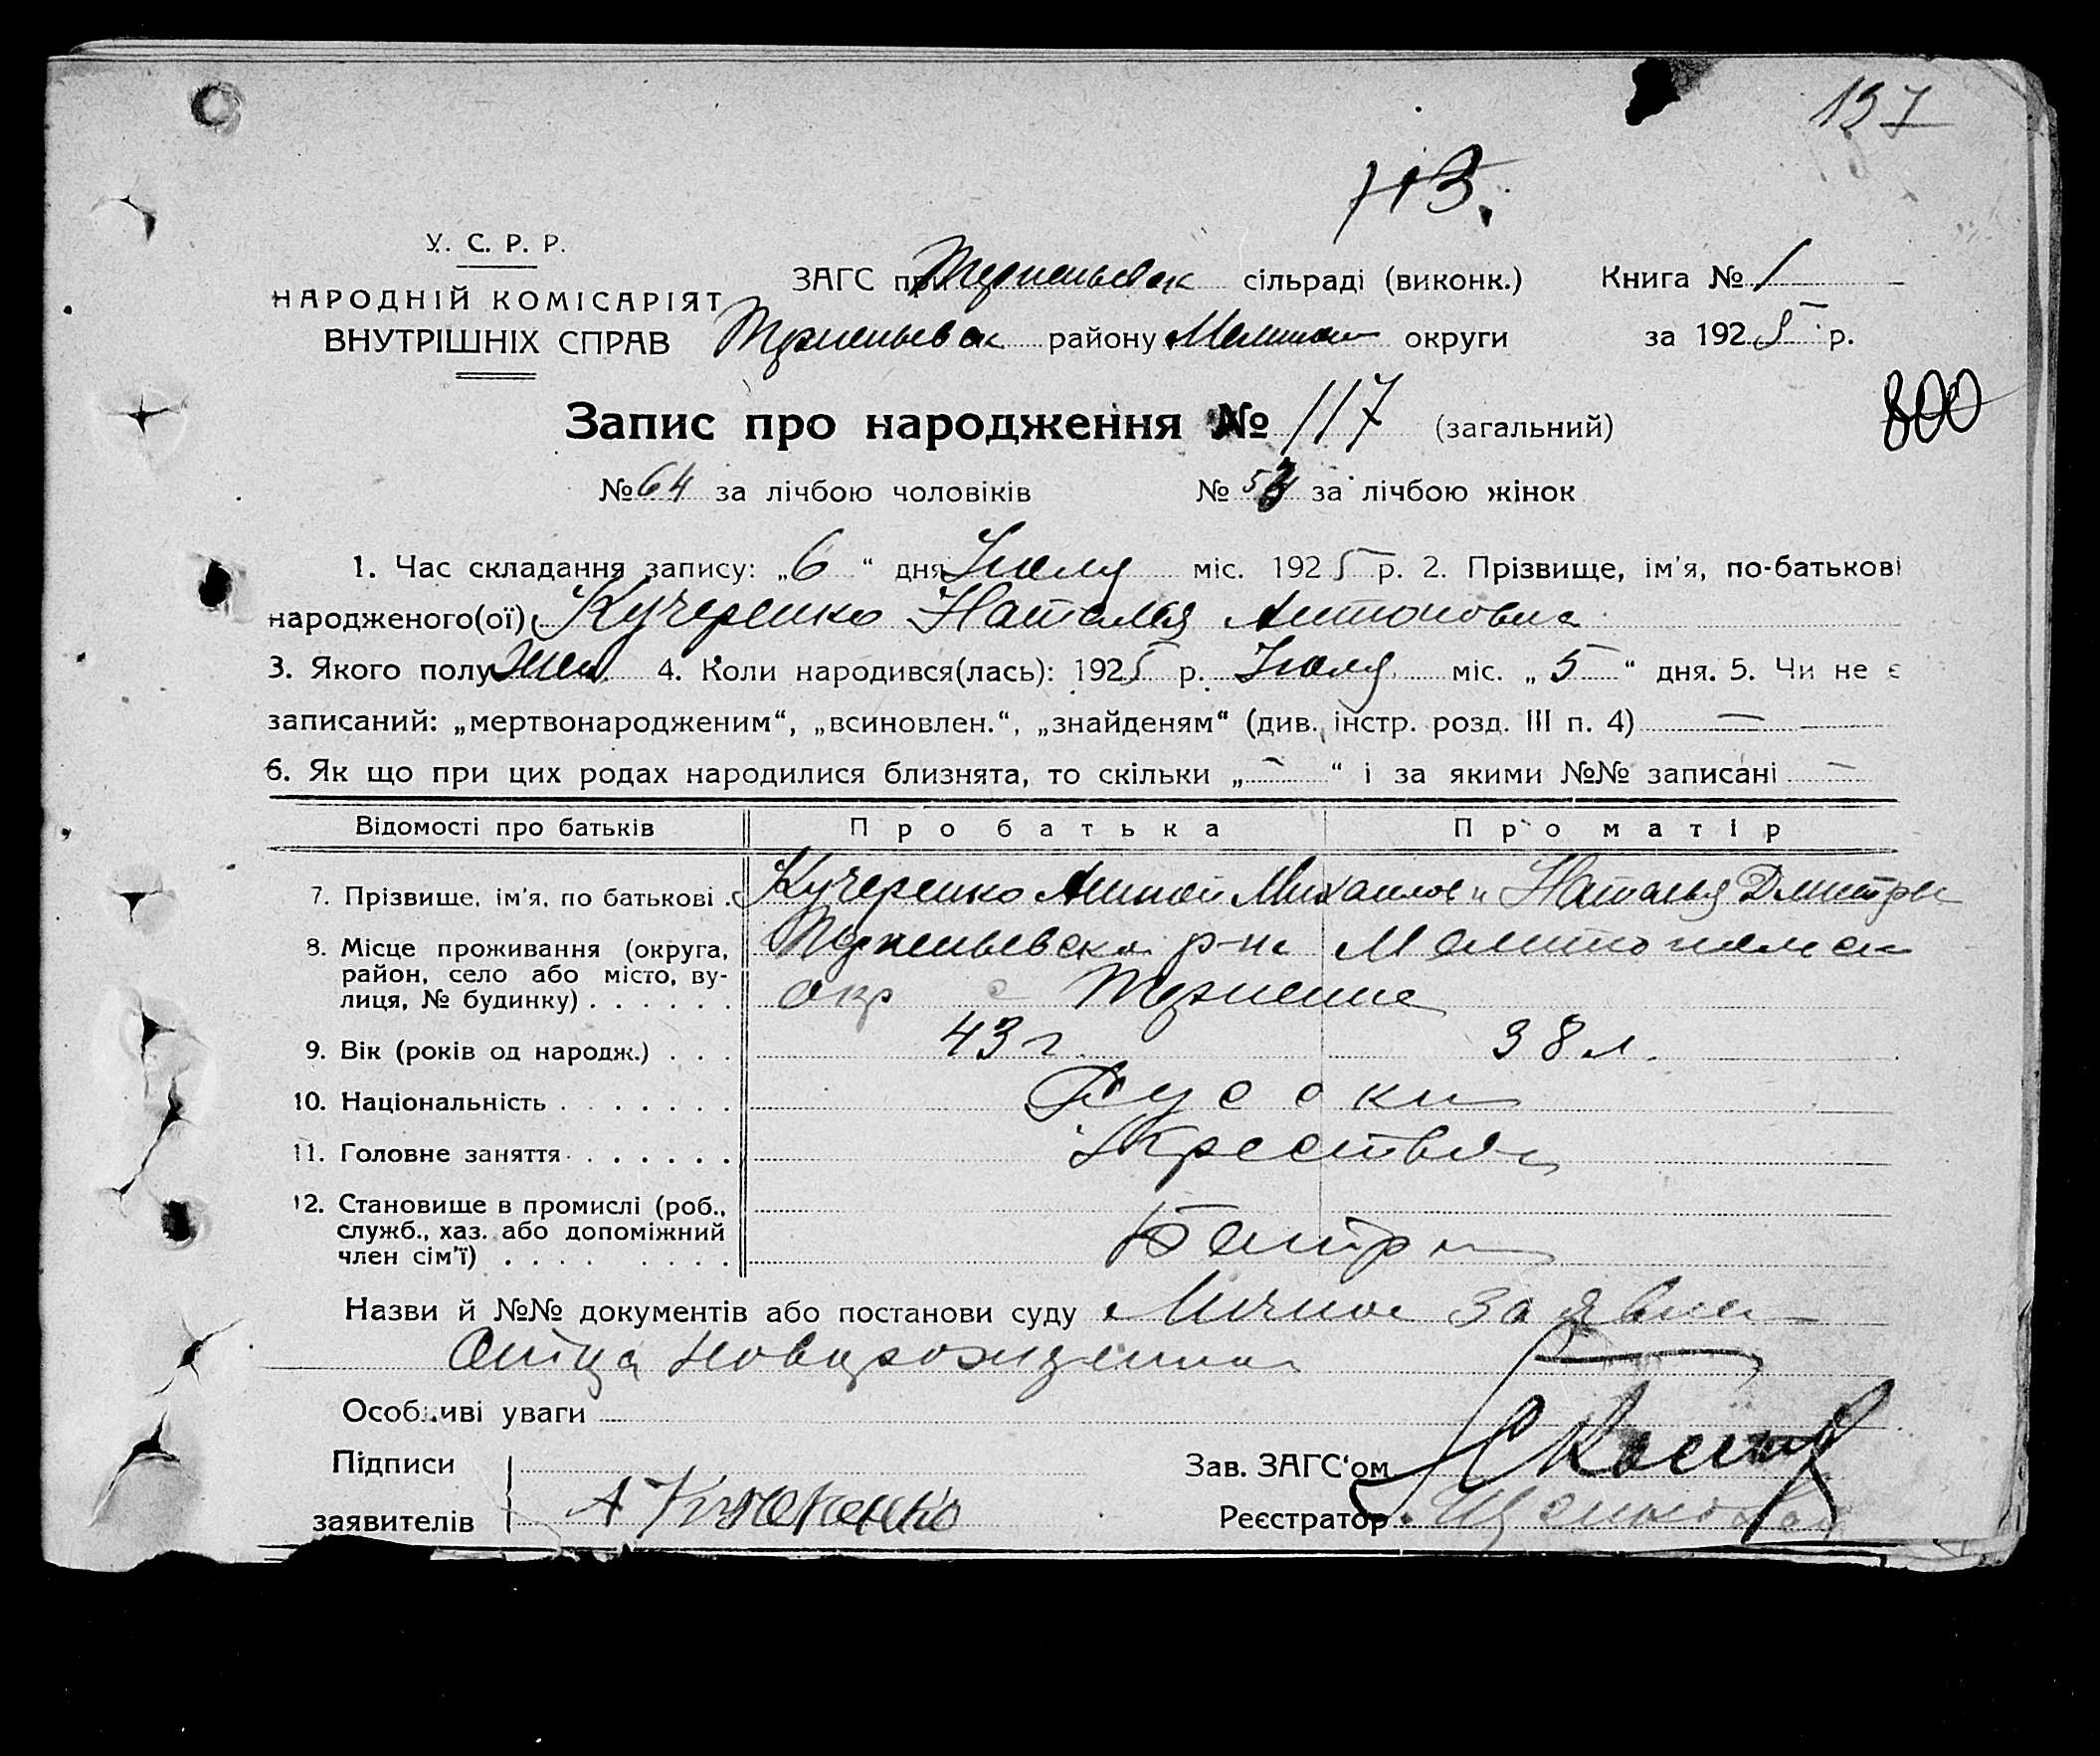 137
713.
У. С. Р. Р.
НАРОДНІЙ КОМІСАРІЯТ
ВНУТРІШНІХ СПРАВ
ЗАГС при сільраді (виконк.) Книга № 1
району Мелитоп округи за 1925 р.
Запис про народження № 117 (загальний)
800
№ 64 за лічбою чоловіків № 53 за лічбою жінок
1. Час складання запису: „6“ дня Июля міс. 1925 р. 2. Прізвище, ім'я, по-батькові
народженого(ої) Кучеренко Наталия Антоновна
3. Якого полу Жен. 4. Коли народився(лась): 1925 р. Июля міс. „5“ дня. 5. Чи не є
записаний: „мертвонародженим“, „всиновлен.“, „знайденям“ (див. інстр. розд. III п. 4) —
6. Як що при цих родах народилися близнята, то скільки „—“ і за якими №№ записані —
Відомості про батьків Про батька Про матір
7. Прізвище, ім'я, по батькові . Кучеренко Антон Михайлов и Наталья Дмитр
8. Місце проживання (округа, р-на Мелитопольск
район, село або місто, ву-
лиця, № будинку) . . . . . . окр с
9. Вік (років од народж.) . . . 43 г. 38 л.
10. Національність . . . . . . . Русски
11. Головне заняття . . . . . . Крестьян
12. Становище в промислі (роб.,
служб., хаз. або допоміжний
член сім'ї) . . . . . . . .
Назви й №№ документів або постанови суду Личное заявлен
Отца новорожденной
Особливі уваги
Підписи Зав. ЗАГС'ом
заявителів А Кучеренко Реєстратор